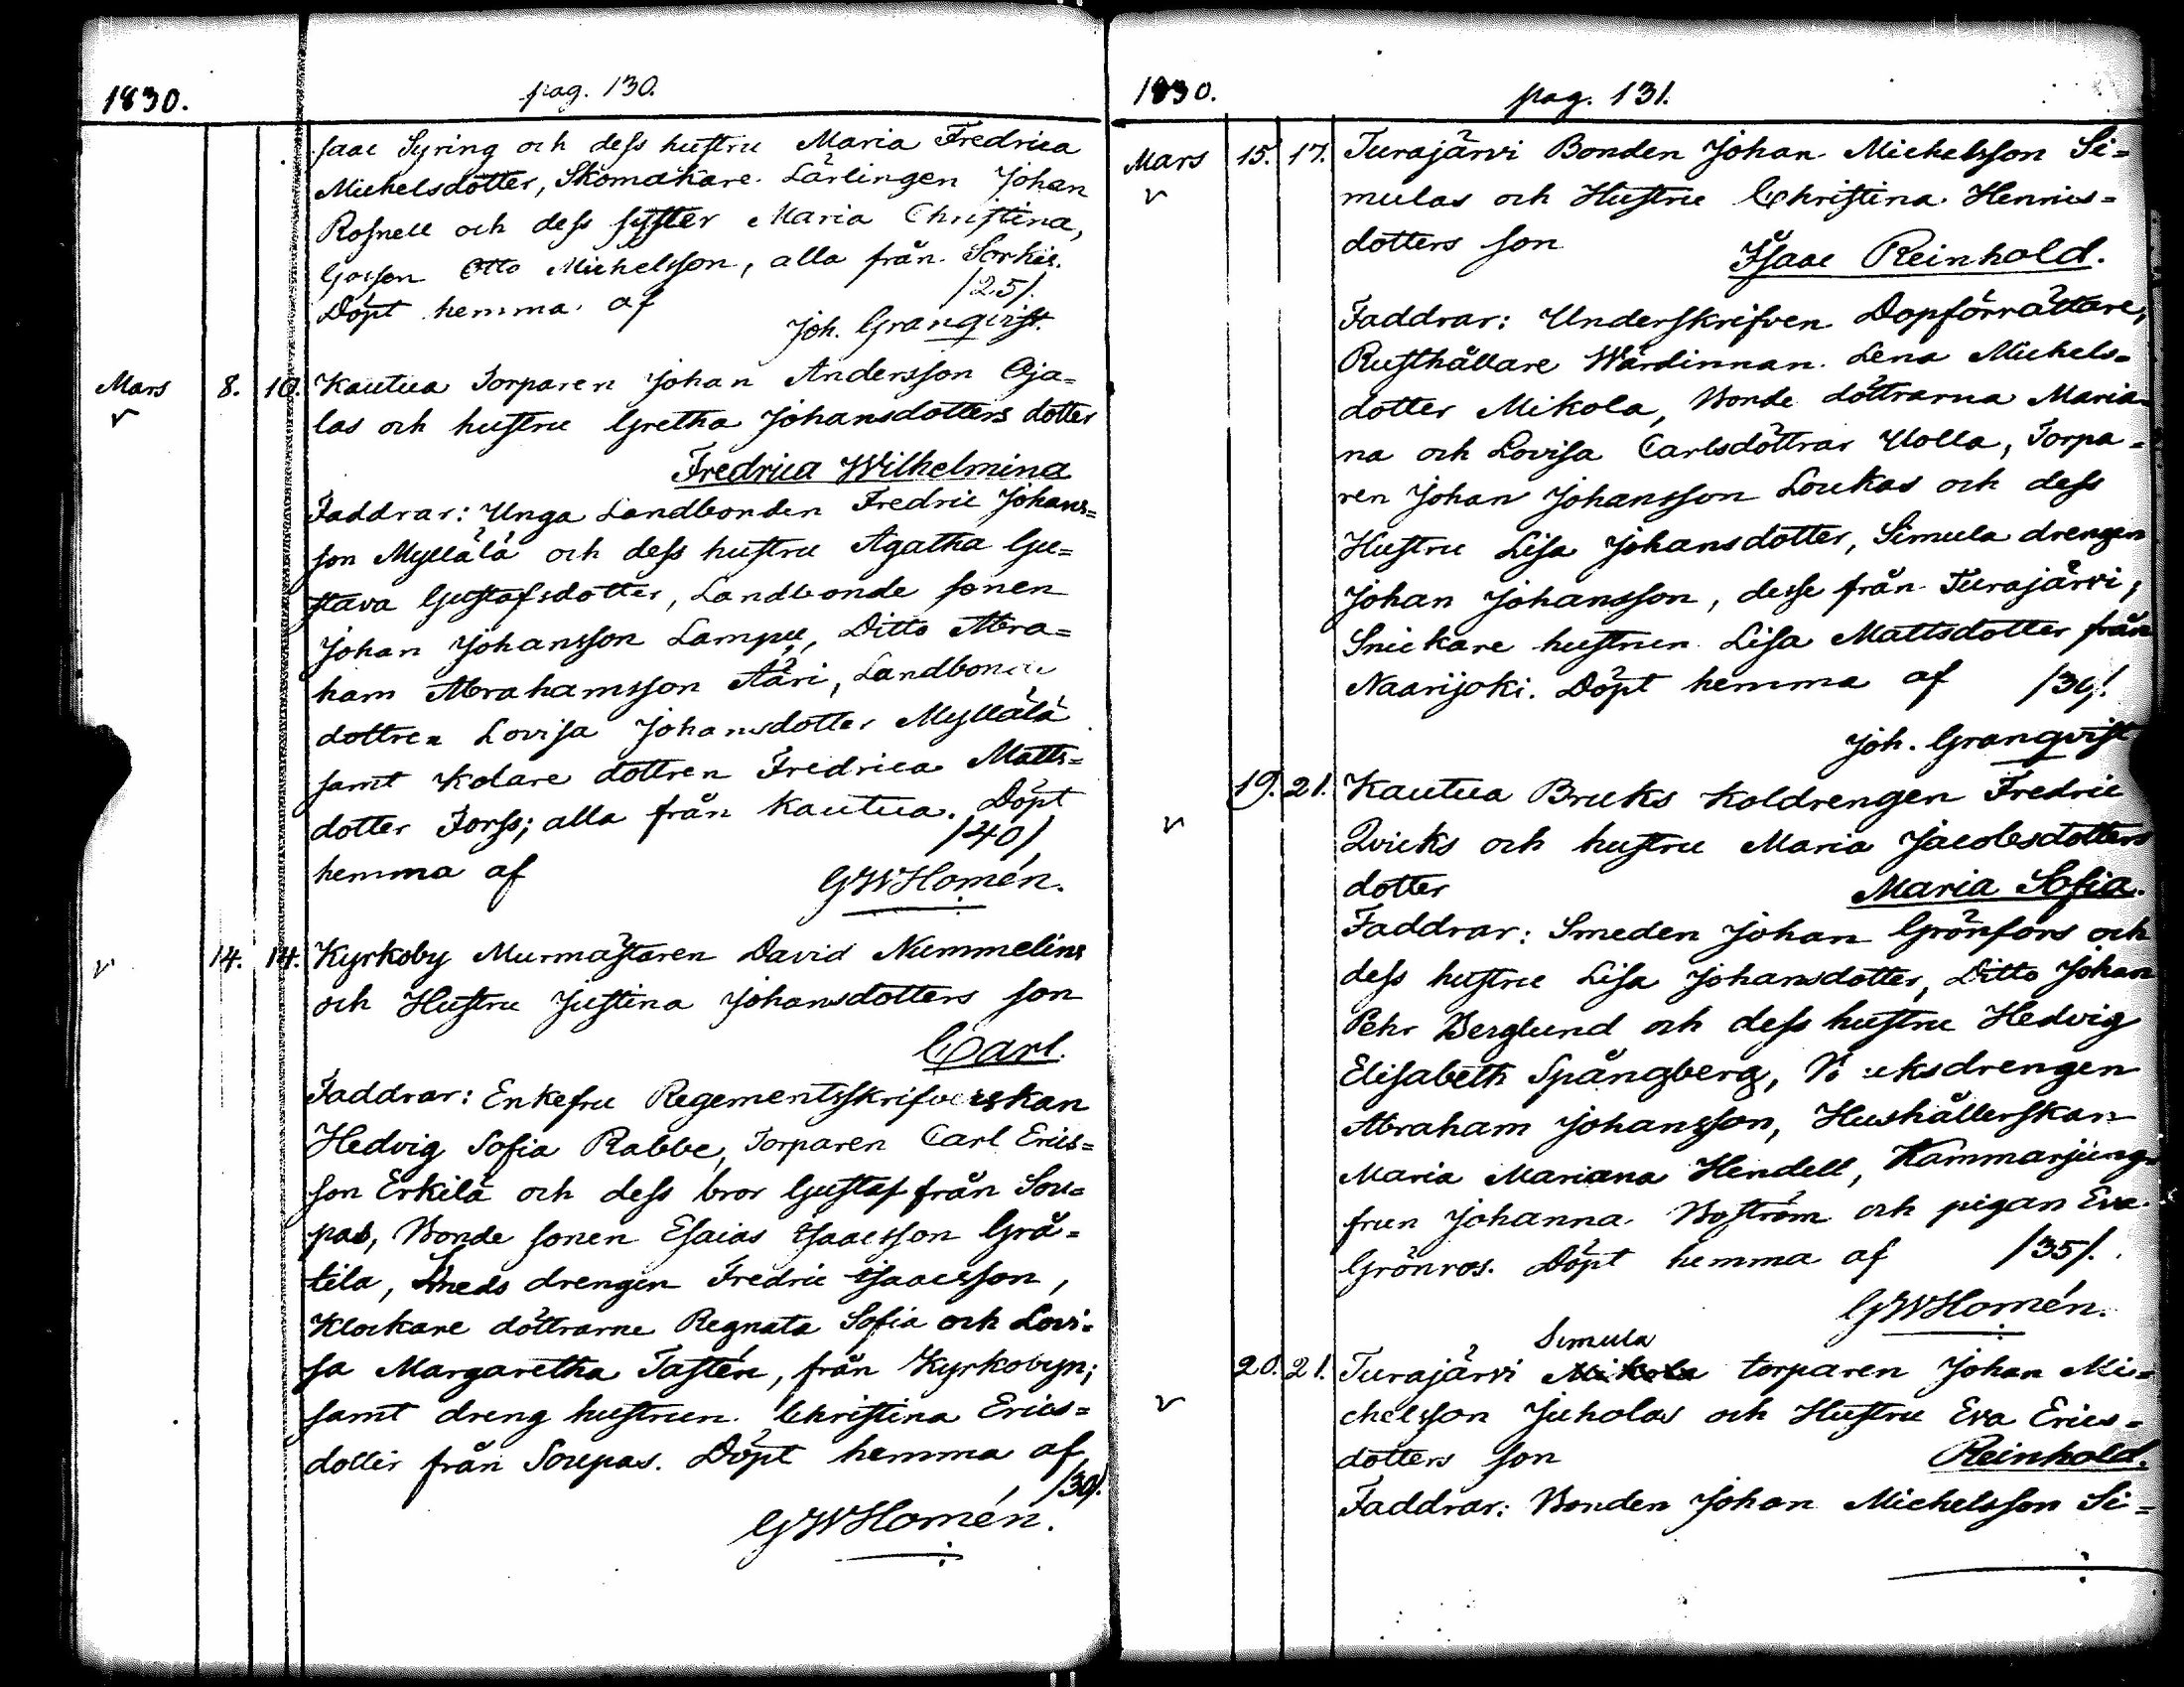 1830.
pag. 130.
saac Syring och dess hustru Maria Fredrica
Michelsdotter, Skomakare Lärlingen Johan
Rosnell och dess syster Maria Christina,
Gossen Otto Michelsson, alla från Sorkis.
/25/.
Döpt hemma af
Joh. Granqvist.
Mars 8. 10. Kautua Torparen Johan Andersson Oja=
las och hustru Gretha Johansdotters dotter
Fredrica Wilhelmina
Faddrar: Unga Landbonden Fredric Johans=
son Myllälä och dess hustru Agatha Gu=
stava Gustafsdotter, Landbonde sonen
Johan Johansson Lampu, Ditto Abra=
ham Abrahamsson Ääri, Landbonde
dottren Lovisa Johansdotter Myllälä
samt Kolare dottren Fredrica Matts=
dotter Forss; alla från Kautua. Döpt
/40/
hemma af
GWHomén.
14. 14. Kyrkoby Murmästaren David Nummelins
och Hustru Justina Johansdotters son
Carl.
Faddrar: Enkefru Regementsskrifverskan
Hedvig Sofia Rabbe, Torparen Carl Erics=
son Erkilä och dess bror Gustaf från Sou=
pas, Bonde sonen Esaias Isaacsson Grä=
tila, Smeds drengen Fredric Isaacsson,
Klockare döttrarne Regnata Sofia och Lovi=
sa Margaretha Tastén, från Kyrkobyn;
samt dreng hustrun Christina Erics=
dotter från Soupas. Döpt hemma af
/30/.
GWHomén.
1830.
pag. 131.
Mars 15. 17. Turajärvi Bonden Johan Michelsson Si=
mulas och Hustru Christina Henrics=
dotters son
Isaac Reinhold.
Faddrar: Underskrifven Dopförrättare,
Rusthållare Wärdinnan Lena Michels=
dotter Mikola, Bonde döttrarna Maria=
na och Lovisa Carlsdöttrar Uolla, Torpa=
ren Johan Johansson Loukas och dess
Hustru Lisa Johansdotter, Simula drengen
Johan Johansson, desse från Turajärvi;
Snickare hustrun Lisa Mattsdotter från
Naarijoki. Döpt hemma af /30/.
Joh. Granqvist
19. 21. Kautua Bruks Koldrengen Fredric
Qvicks och hustru Maria Jacobsdotters
dotter Maria Sofia.
Faddrar: Smeden Johan Grönfors och
dess hustru Lisa Johansdotter, Ditto Johan
Pehr Berglund och dess hustru Hedvig
Elisabeth Spångberg, Bruksdrengen
Abraham Johansson, Hushållerskan
Maria Mariana Hendell, Kammarjung=
frun Johanna Boström och pigan Eva
Grönros. Döpt hemma af /35/.
GWHomén.
Simula
20. 21. Turajärvi Mikola torparen Johan Mi=
chelsson Juholas och Hustru Eva Erics=
dotters son Reinhold.
Faddrar: Bonden Johan Michelsson Si=